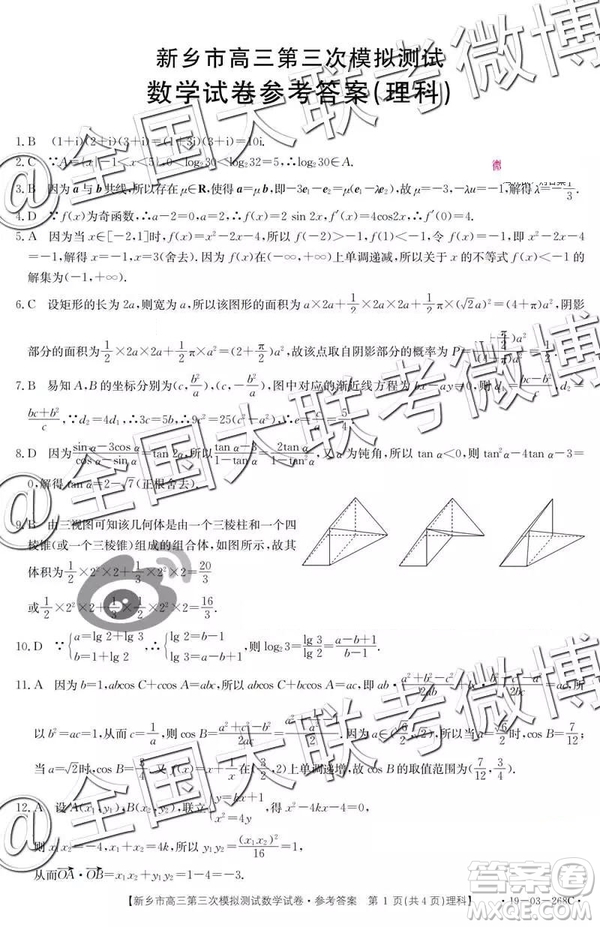 新乡市高三第三次模拟测试
数学试卷参考答案(理科)
1. B (1+i)(2+i)(3+i)=(1+3i)(3+i)=10i.
2. C ∵A={x|-1<x<5},0<log₂30<log₂32=5,∴log₂30∈A.
3. B 因为a与b共线,所以存在μ∈R,使得a=μb,即-3e₁-e₂=μ(e₁-λe₂),故μ=-3,-λμ=-1,解得λ=-
4. D ∵f(x)为奇函数,∴a-2=0,a=2,∴f(x)=2 sin 2x,f′(x)=4cos2x,∴f′(0)=4.
5. A 因为当x∈[-2,1]时,f(x)=x²-2x-4,所以f(-2)>-1,f(1)<-1.令f(x)=-1,即x²-2x-4
=-1,解得x=-1,x=3(舍去).因为f(x)在[-2,+∞)上单调递减,所以关于x的不等式f(x)<-1的
解集为(-1,+∞).
6. C 设矩形的长为2a,则宽为a,所以该图形的面积为a×2a+1/2×a×2a+1/2π×(√2a)²=(4+π)a²,阴影
部分的面积为1/2×2a×2a+1/2π×a²=(2+π/2)a²,故该点取自阴影部分的概率为P=
7. B 易知A,B的坐标分别为(c,b²/a),(c,-b²/a),图中对应的渐近线方程为bx-ay=0,则d₁=
(bc+b²)/c,∵d₂=4d₁,∴3c=5b,∴9c²=25(c²-a²),∴e=c/a=5/4.
8. D 因为(sinα-3cosα)/(cosα-sinα)=tan2α,所以(tanα-3)/(1-tanα)=2tanα/(1-tan²α).又α为钝角,所以tanα<0,则tan²α-4tanα-3=
0,解得tanα=2-√7(正根舍去).
9. B 由三视图可知该几何体是由一个三棱柱和一个四
棱锥(或一个三棱锥)组成的组合体,如图所示.故其
体积为1/2×2²×2+1/3×2²×2=20/3
或1/2×2²×2+1/3×1/2×2²×2=16/3.
10. D ∵{a=lg 2+lg 3 b=1+lg 2,∴{lg 2=b-1 lg 3=a-b+1,则log₂3=lg 3/lg 2=(a-b+1)/(b-1).
11. A 因为b=1,abcos C+ccos A=abc,所以abcos C+bccos A=ac,即
以b²=ac=1,从而c=1/a,
当a=√2时,cos B=3/4.
上单调递增,故cos B的取值范围为(7/12,3/4).
12. A 设A(x₁,y₁),B(x₂,y₂),联立
得x²-4kx-4=0,
则x₁x₂=-4,所以y₁y₂=(x₁x₂)²/16=1,
从而OA·OB=
【新乡市高三第三次模拟测试数学试卷·参考答案 第1页(共4页)理科】
·19-03-268C·
@全国大联考微博
@全国大联考微博
@全国大联考微博